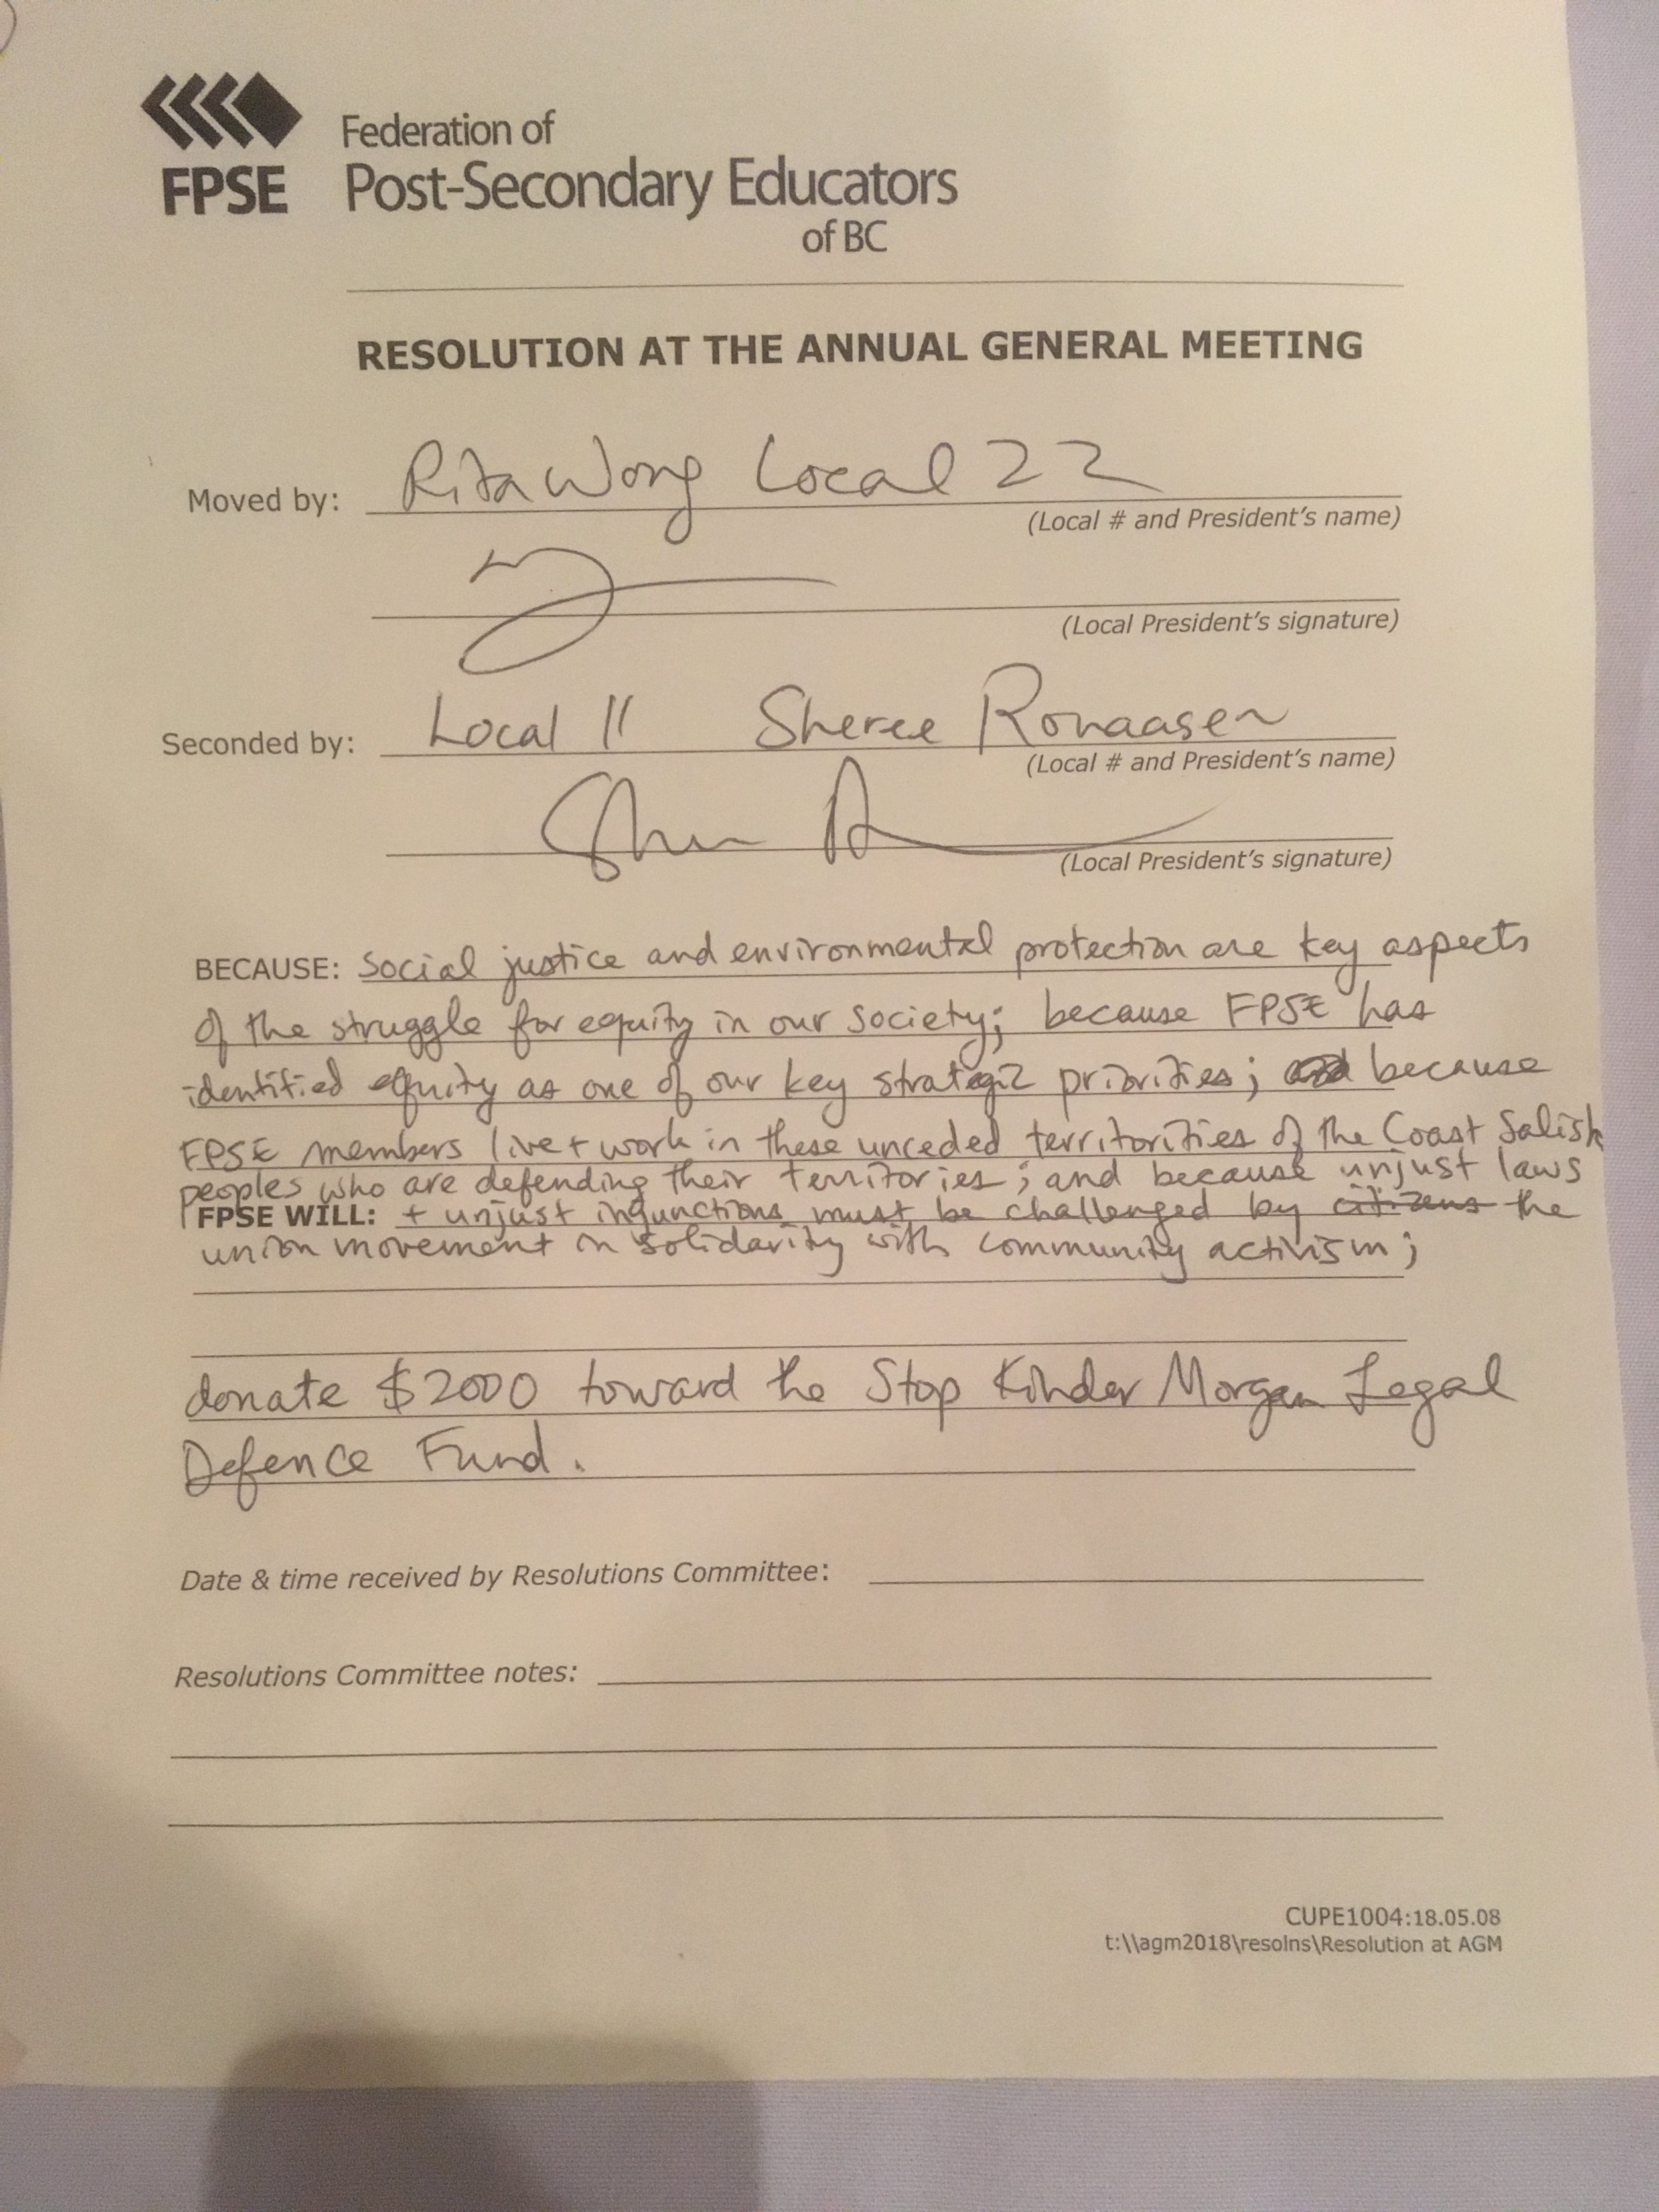 Federation of
FPSE Post-Secondary Educators
of BC
RESOLUTION AT THE ANNUAL GENERAL MEETING
Moved by: Rita Wong Local 22
(Local # and President's name)
(Local President's signature)
Seconded by: Local 11 Sheree Ronaasen
(Local # and President's name)
(Local President's signature)
BECAUSE: Social justice and environmental protection are key aspects
of the struggle for equity in our society; because FPSE has
identified equity as one of our key strategic priorities; because
FPSE members live + work in these unceded territorities of the Coast Salish
peoples who are defending their territories; and because unjust laws
FPSE WILL: + unjust injunctions must be challenged by citizens the
union movement in solidarity with community activism;
donate $2000 toward the Stop Kinder Morgan Legal
Defence Fund.
Date & time received by Resolutions Committee:
Resolutions Committee notes:
CUPE1004:18.05.08
t:\\agm2018\resolns\Resolution at AGM